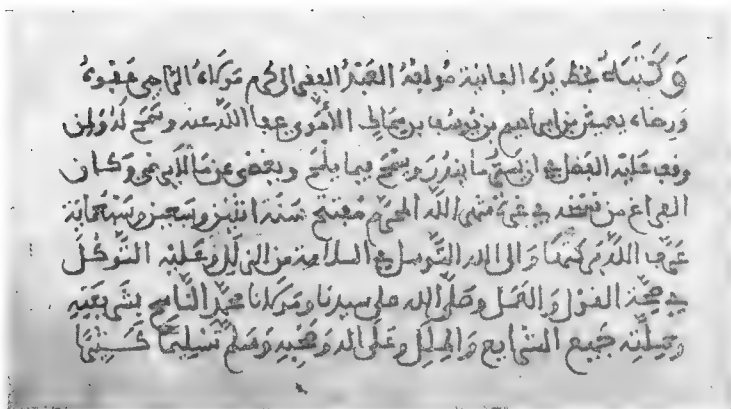 وَكَتَبَهُ بخط يَدِه الفانية مُولِفُهُ العَبْدُ الفقير الى رحم مَوْلَاهُ الرَّاجي عَفْوَهُ
وَرضاه يعيش بن ابراهيم بن يوسف بن سماك الأموي عفا اللّه عنه وسَمَحَ لَهُ ولمن
وقف عليه الفضل في ان يستُر ما يندُر ويسمح فيما يلمح ويغضى عن ما لا يرضى وَكان
الفراغ من نسخه في غرة شهر اللّه المحرَّم مفتتح سَنَة اثنين وسبعين وسبعماية
عرَّف اللّه بركتها وَالى اللّه التَّوسل في السلامة من الزلل وعليه التوكل
في صحَّة القول وَالعَمَل وصَلَّى اللّه على سيدنا ومَولانا محمَّد النَّاسخ بشريعَته
وملَّته جميع الشرايع وَالمِلَل وعَلى اله وَصَحْبِه وَسَلَّم تَسْلِيمًا كَثِيرًا